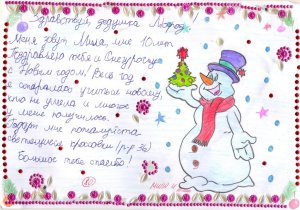 Здравствуй, дедушка Мороз
Меня зовут Мила, мне 10 лет
Поздравляю тебя и Снегурочку
с Новым годом! Весь год
я старалась учиться новому,
что не умела и многое
у меня получилось.
Подари мне пожалуйста
кроссовки (р-р 36)
Большое тебе спасибо!